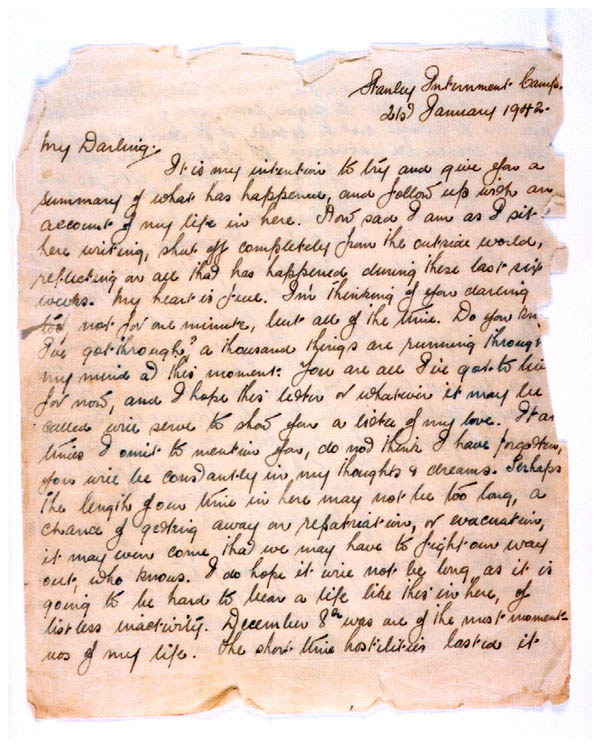 Stanley Internment Camp.
21st January 1942.
My Darling,
It is my intention to try and give you a
summary of what has happened, and follow up with an
account of my life in here. How sad I am as I sit
here writing, shut off completely from the outside world,
reflecting on all that has happened during these last six
weeks. My heart is full. I'm thinking of you darling
too, not for one minute, but all of the time. Do you kn
I've got through? a thousand things are running through
my mind at this moment. You are all I've got to live
for now, and I hope this letter or whatever it may be
called will serve to show you a little of my love. If at
times I omit to mention you, do not think I have forgotten,
you will be constantly in my thoughts & dreams. Perhaps
the length of our time in here may not be too long, a
chance of getting away on repatriation, or evacuation,
it may even come that we may have to fight our way
out, who knows. I do hope it will not be long as it is
going to be hard to bear a life like this in here, of
listless inactivity. December 8th was one of the most moment-
uos of my life. The short time hostilities lasted it